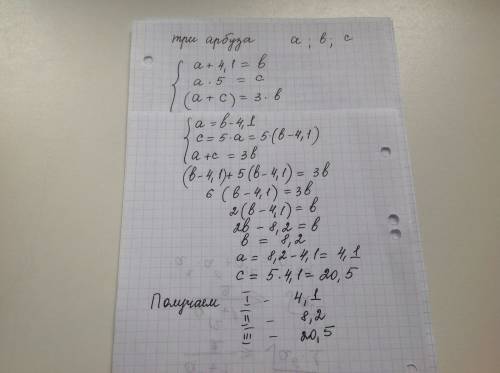 три арбуза a; в; с
a + 4,1 = в
a · 5 = c
(a + c) = 3 · в
a = в - 4,1
c = 5 · a = 5(в - 4,1)
a + c = 3в
(в - 4,1) + 5(в - 4,1) = 3в
6(в - 4,1) = 3в
2(в - 4,1) = в
2в - 8,2 = в
в = 8,2
a = 8,2 - 4,1 = 4,1
c = 5 · 4,1 = 20,5
Получаем I - 4,1
II - 8,2
III - 20,5